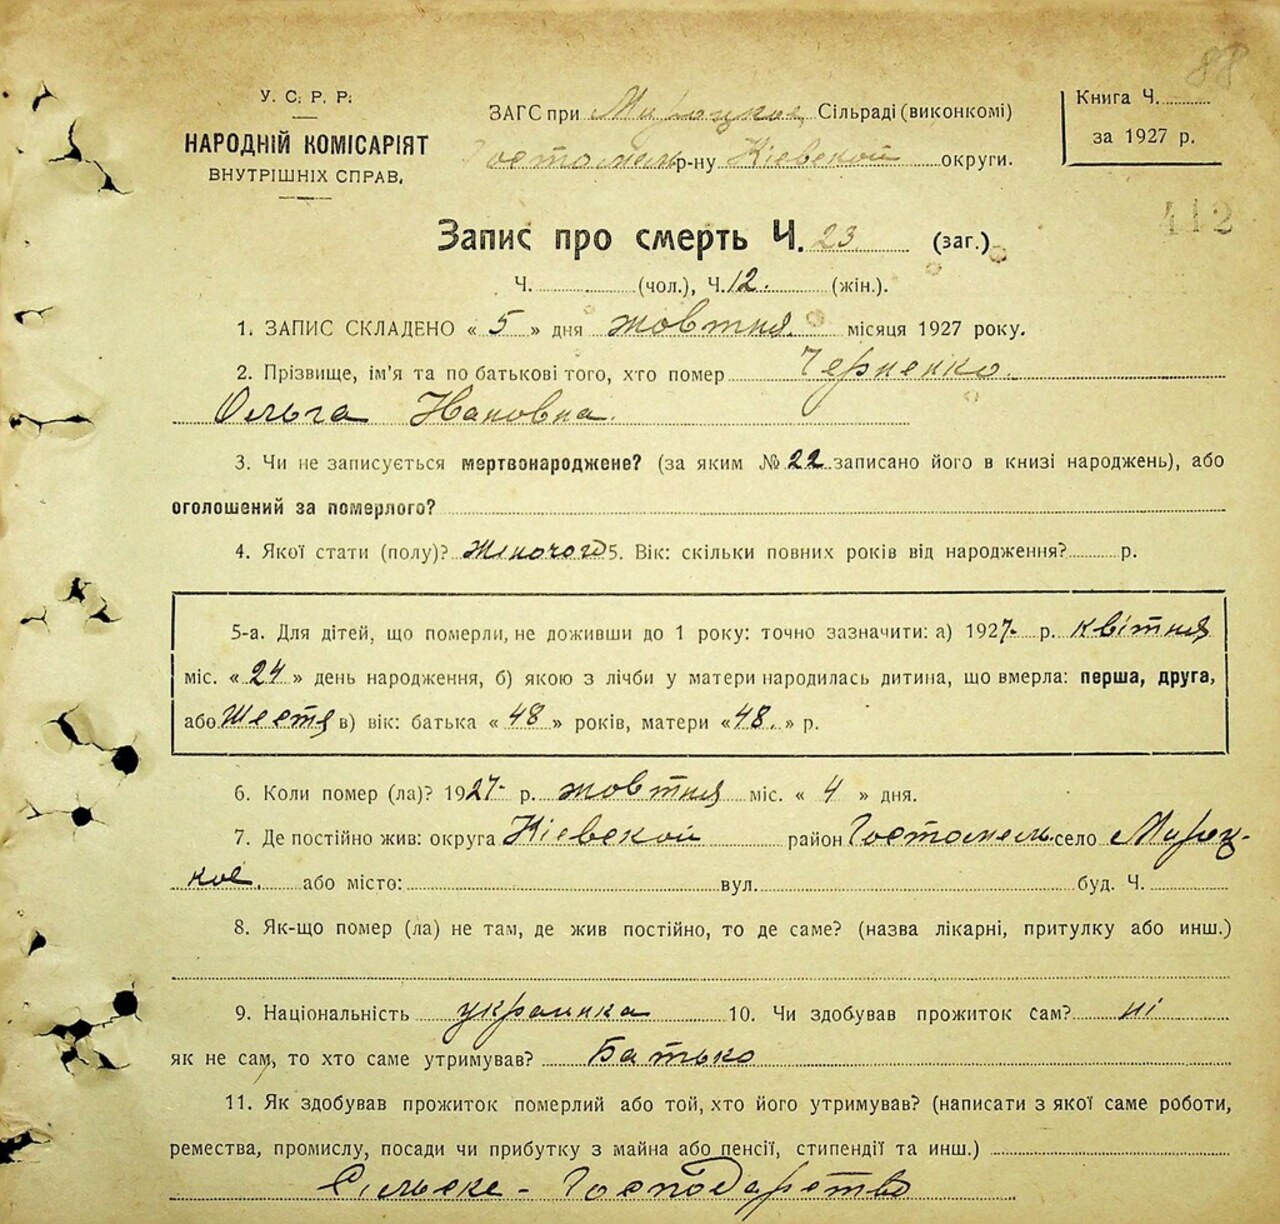 88
У. С. Р. Р.
НАРОДНІЙ КОМІСАРІЯТ
ВНУТРІШНІХ СПРАВ.
ЗАГС при Мироцкое Сільраді (виконкомі)
Гостомель р-ну Кіевской округи.
Книга Ч.
за 1927 р.
412
Запис про смерть Ч. 23 (заг.)
Ч. (чол.), Ч. 12. (жін.).
1. ЗАПИС СКЛАДЕНО « 5 » дня жовтня місяця 1927 року.
2. Прізвище, ім'я та по батькові того, хто помер Черненко
Ольга
3. Чи не записується мертвонароджене? (за яким № 22 записано його в книзі народжень), або
оголошений за померлого?
4. Якої стати (полу)? жіночого 5. Вік: скільки повних років від народження? р.
5-а. Для дітей, що померли, не доживши до 1 року: точно зазначити: а) 1927 р. квітня
міс. « 24 » день народження, б) якою з лічби у матери народилась дитина, що вмерла: перша, друга,
або Шестя в) вік: батька « 48 » років, матери « 48. » р.
6. Коли помер (ла)? 1927 р. жовтня міс. « 4 » дня.
7. Де постійно жив: округа Кіевской район Гостомель село Мироц-
кое. або місто: вул. буд. Ч.
8. Як-що помер (ла) не там, де жив постійно, то де саме? (назва лікарні, притулку або инш.)
9. Національність украинка 10. Чи здобував прожиток сам? ні
як не сам, то хто саме утримував? Батько
11. Як здобував прожиток померлий або той, хто його утримував? (написати з якої саме роботи,
ремества, промислу, посади чи прибутку з майна або пенсії, стипендії та инш.)
Сільске - Господарство